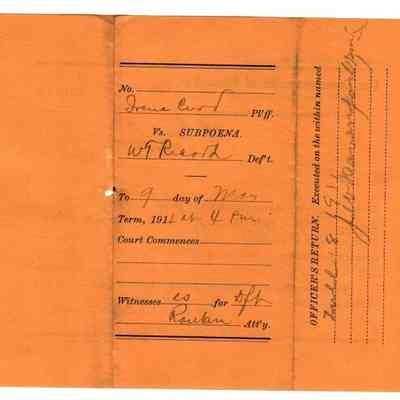 No.
Irene Curd Pl'ff.
Vs. SUBPOENA.
WT Def't.
To 9 day of Mar
Term, 1911 at 4 P.m.
Court Commences
Witnesses es for Dft
Rankin Att'y.
OFFICER'S RETURN. Executed on the within named
8 1911